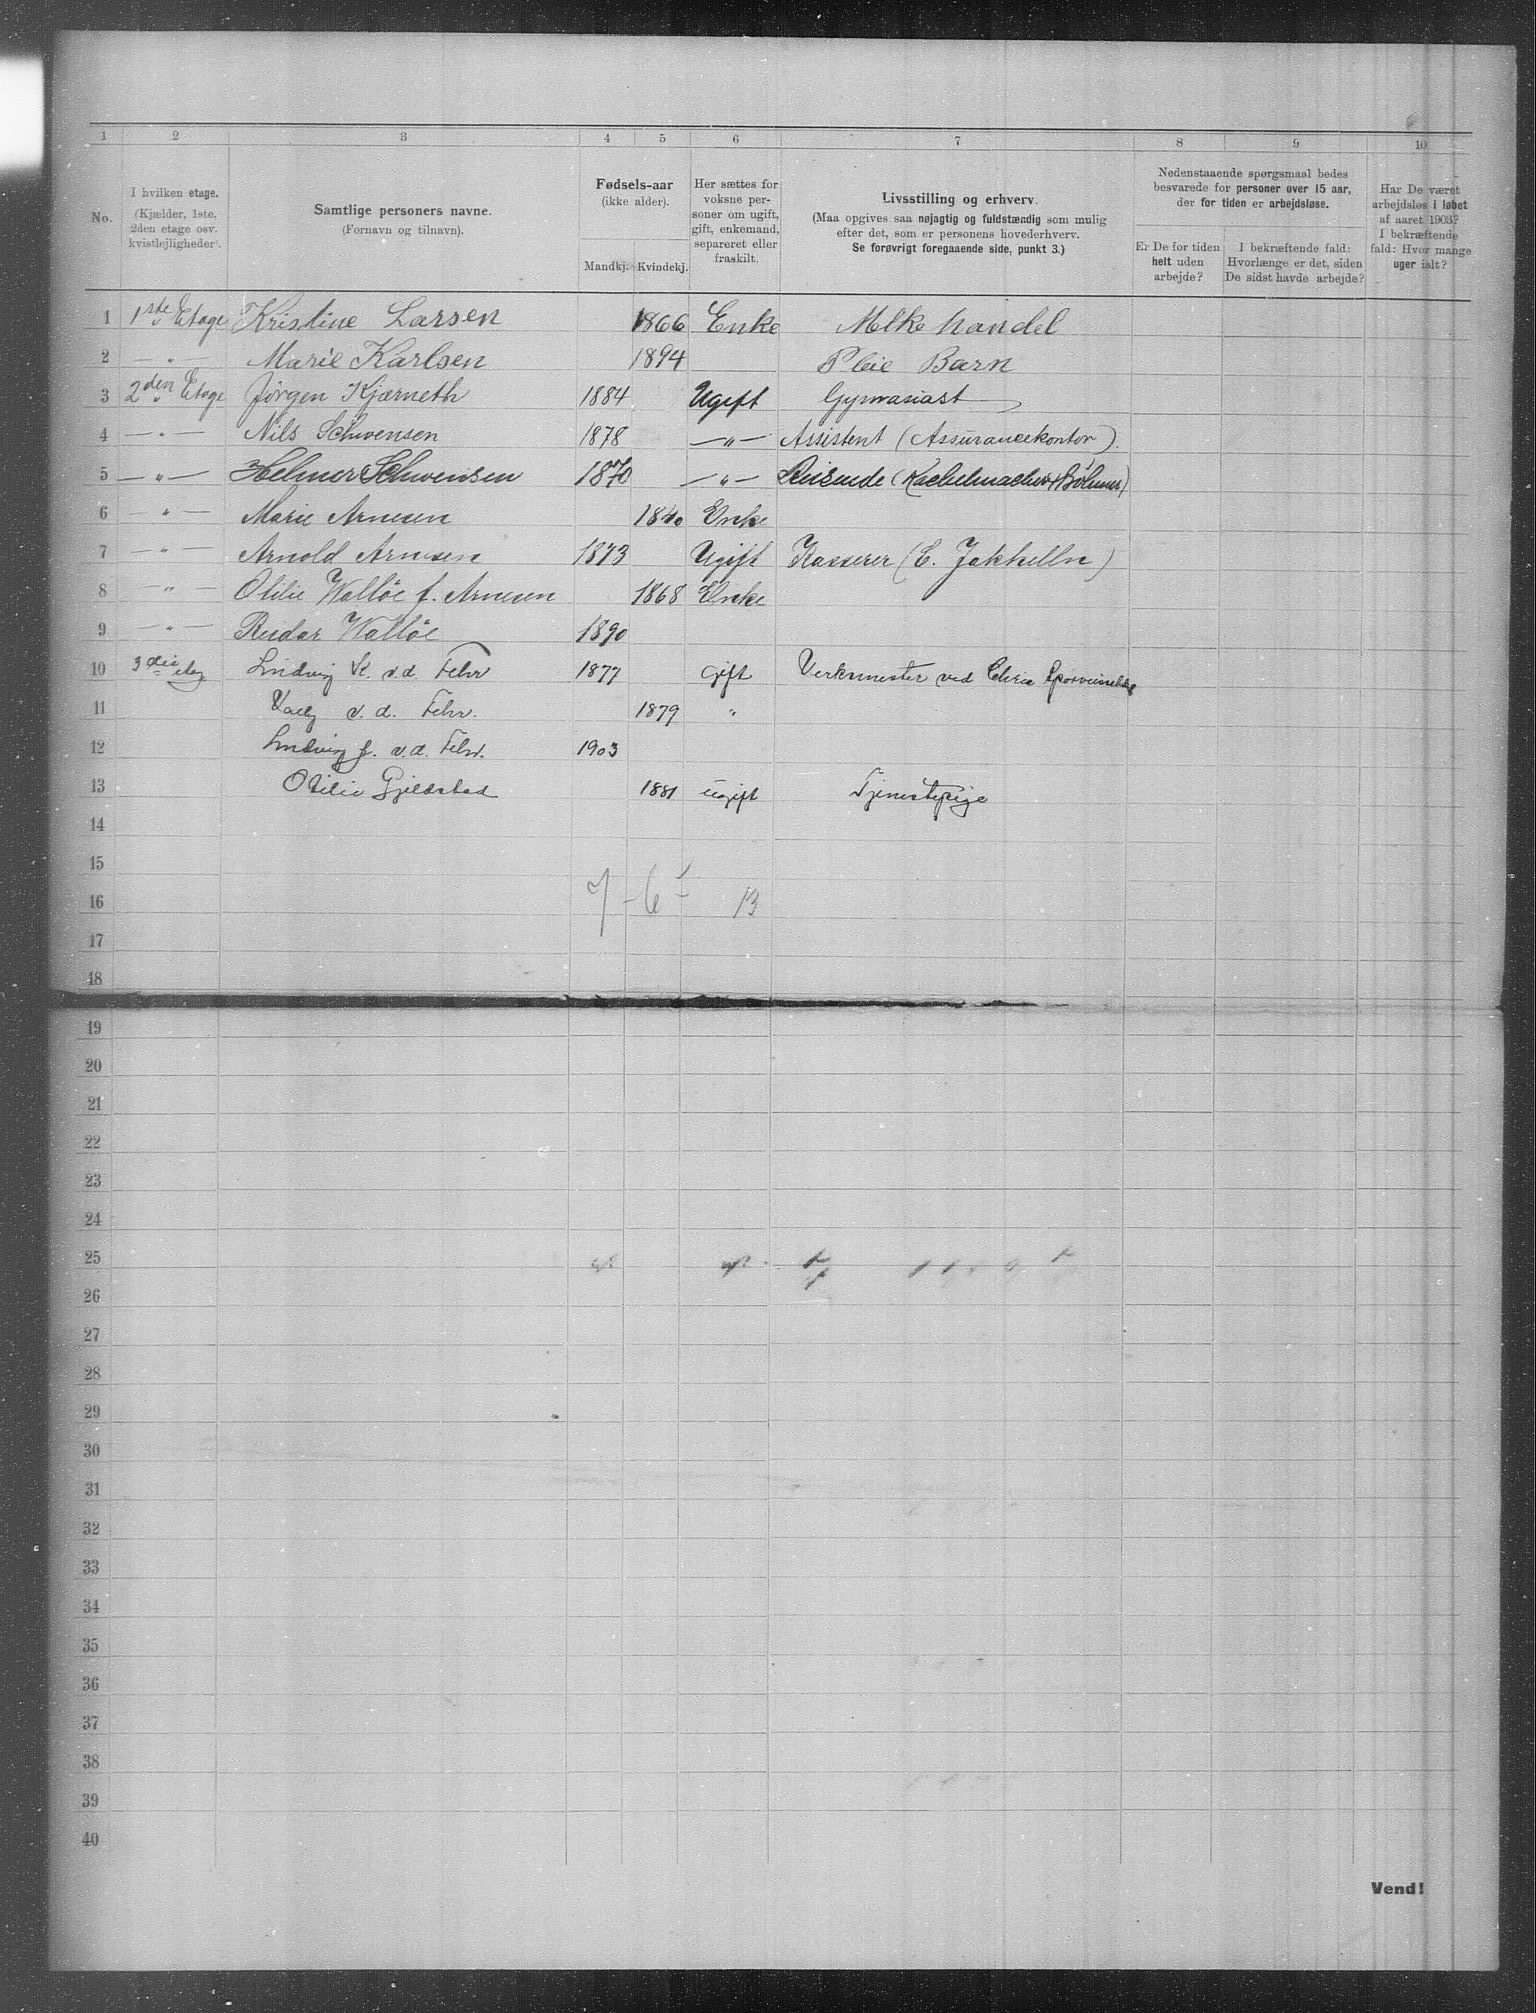 1 2 3 4 5 6 7 8 9 10
No.
I hvilken etage.
(Kjælder, 1ste,
2den etage osv.
kvistlejligheder).
Samtlige personers navne.
(Fornavn og tilnavn).
Fødsels-aar
(ikke alder).
Mandkj. Kvindekj.
Her sættes for
voksne per-
soner om ugift,
gift, enkemand,
separeret eller
fraskilt.
Livsstilling og erhverv.
(Maa opgives saa nøjagtig og fuldstændig som mulig
efter det, som er personens hovederhverv.
Se forøvrigt foregaaende side, punkt 3.)
Nedenstaaende spørgsmaal bedes
besvarede for personer over 15 aar,
der for tiden er arbejdsløse.
Er De for tiden
helt uden
arbejde?
I bekræftende fald:
Hvorlænge er det, siden
De sidst havde arbejde?
Har De været
arbejdsløs i løbet
af aaret 1903?
I bekræftende
fald: Hvor mange
uger ialt?
1 1ste Etage Kristine Larsen 1866 Enke Melke handel
2 — " — Marie Karlsen 1894 Pleie Barn
3 2den Etage Jørgen Kjærneth 1884 Ugift Gymnasiast
4 — " — Nils Schwensen 1878 — " — Assistent (Assurancekontor).
5 — " — Helmer Schwensen 1870 — " — Reisende (Kachelmacher & Bøhmer)
6 — " — Marie Arnesen 1840 Enke
7 — " — Arnold Arnesen 1873 Ugift Kasserer (E. Jakhelln)
8 — " — Otilie Walløe f. Arnesen 1868 Enke
9 — " — Reidar Walløe 1890
10 3die etag Ludvig K. v.d. Fehr 1877 gift Verksmester ved Chria
11 v. d. Fehr. 1879 "
12 Ludvig f. v.d. Fehr. 1903
13 Otilie Gjeldstad 1881 ugift Tjenestepige
14
15
7 - 6 13
16
17
18
19
20
21
22
23
24
25
26
27
28
29
30
31
32
33
34
35
36
37
38
39
40
Vend!